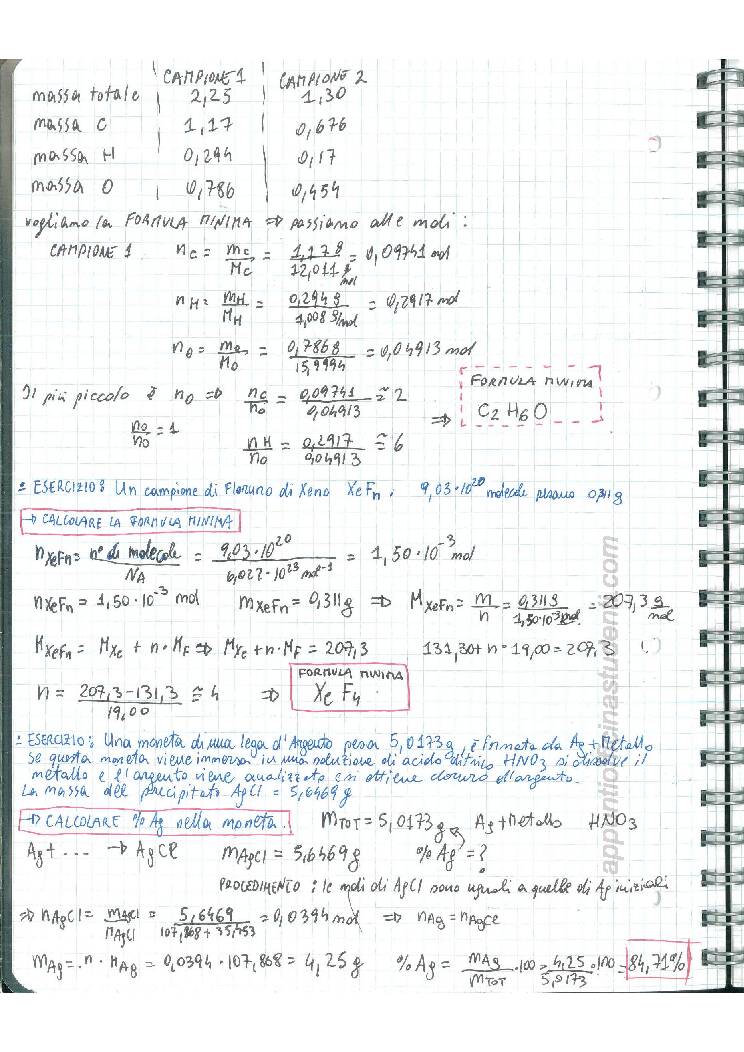 CAMPIONE 1 CAMPIONE 2
massa totale 2,25 1,30
massa C 1,17 0,676
massa H 0,294 0,17
massa O 0,786 0,454
vogliamo la FORMULA MINIMA => passiamo alle moli:
CAMPIONE 1 nC = mC/MC = 1,17g/12,011 g/mol = 0,09741 mol
nH = mH/MH = 0,294g/1,008 g/mol = 0,2917 mol
nO = mO/MO = 0,786g/15,9994 = 0,04913 mol
Il più piccolo è nO => nC/nO = 0,09741/0,04913 ≅ 2
nO/nO = 1
nH/nO = 0,2917/0,04913 ≅ 6
=> FORMULA MINIMA
C2H6O
ESERCIZIO: Un campione di Floruro di Xeno XeFn: 9,03·10^20 molecole pesano 0,311g
→ CALCOLARE LA FORMULA MINIMA
nXeFn = n° di molecole/NA = 9,03·10^20/6,022·10^23 mol^-1 = 1,50·10^-3 mol
nXeFn = 1,50·10^-3 mol mXeFn = 0,311g => MXeFn = m/n = 0,311g/1,50·10^-3 mol = 207,3 g/mol
MXeFn = MXe + n·MF => MXe + n·MF = 207,3 131,30 + n·19,00 = 207,3
n = 207,3-131,3/19,00 ≅ 4 => FORMULA MINIMA
XeF4
ESERCIZIO: Una moneta di una lega d'Argento pesa 5,0173g, è formata da Ag + Metallo
Se questa moneta viene immersa in una soluzione di acido nitrico HNO3 si dissolve il
metallo e l'argento viene analizzato e si ottiene cloruro d'argento.
La massa del precipitato AgCl = 5,6469g
→ CALCOLARE % Ag nella moneta. mTOT = 5,0173g Ag + Metallo HNO3
Ag + ... → AgCl mAgCl = 5,6469g % Ag = ?
PROCEDIMENTO: le moli di AgCl sono uguali a quelle di Ag iniziali
=> nAgCl = mAgCl/MAgCl = 5,6469/107,868 + 35,453 = 0,0394 mol => nAg = nAgCl
mAg = n·MAg = 0,0394·107,868 = 4,25g % Ag = mAg/mTOT ·100 = 4,25/5,0173 ·100 = 84,71%
appuntiofficinastudenti.com